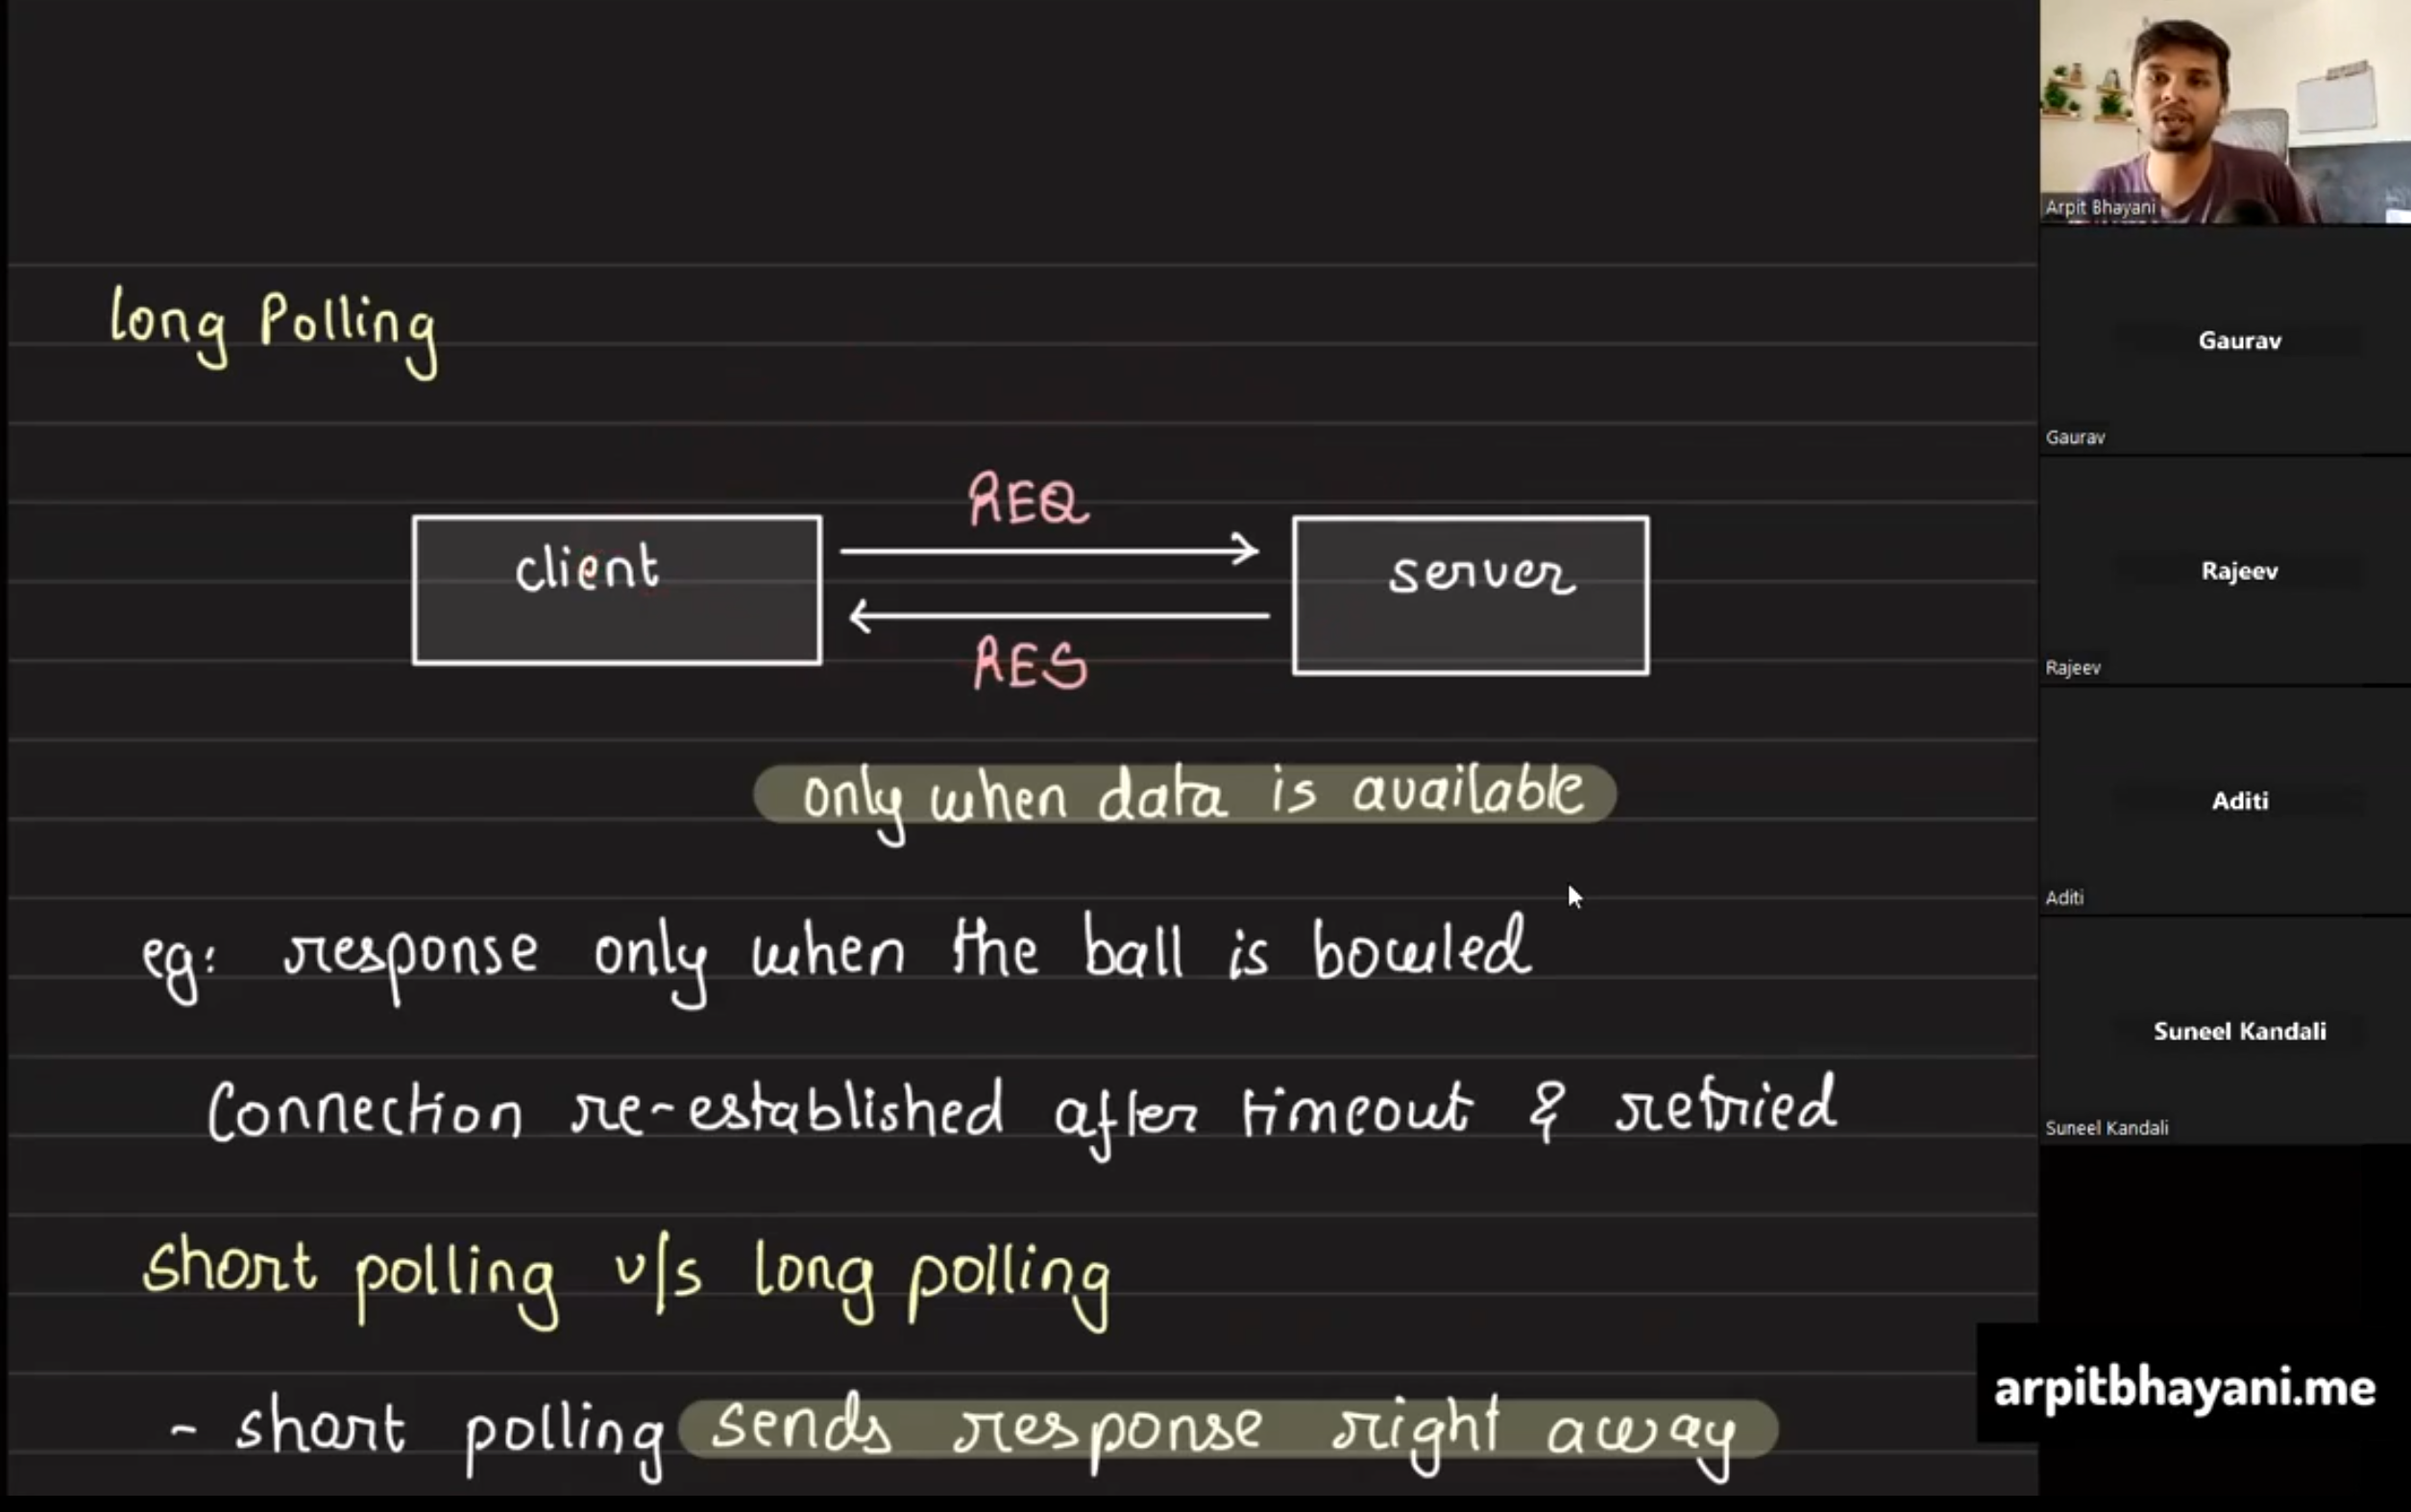 long Polling
REQ
client
server
RES
only when data is available
eg: response only when the ball is bowled
Connection re-established after timeout & retried
short polling v/s long polling
- short polling sends response right away
Arpit Bhayani
Gaurav
Gaurav
Rajeev
Rajeev
Aditi
Aditi
Suneel Kandali
Suneel Kandali
arpitbhayani.me